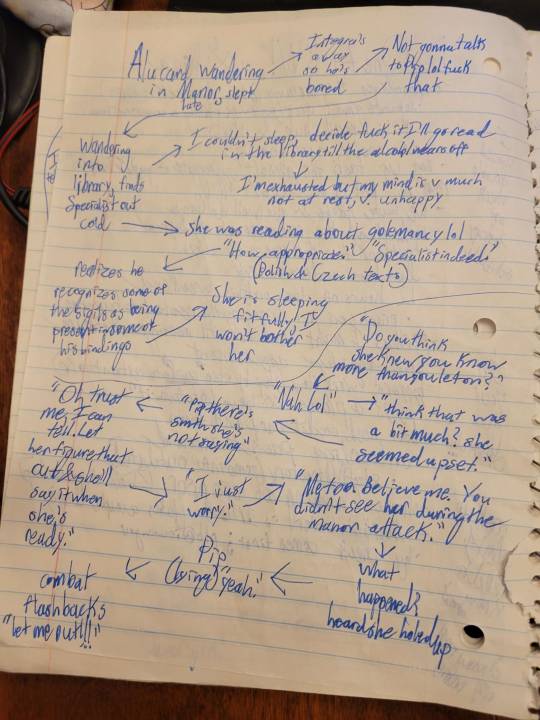 Alucard wandering
in Manor, slept
late
Integra's
away
so he's
bored
Not gonna talk
to Pip lol fuck
that
Wandering
into
library, finds
Specialist out
cold
I couldn't sleep, decide fuck it I'll go read
in the library till the alcohol wears off
I'm exhausted but my mind is v much
not at rest, v. unhappy.
She was reading about golemancy lol
"How appropriate." "Specialist indeed."
(Polish & Czech texts)
realizes he
recognizes some of
the sigils as being
present in some of
his bindings
She is sleeping
fitfully
won't bother
her
"Do you think
she knew you know
more than you let on?"
"Nah lol"
"think that was
a bit much? she
seemed upset."
"Pip there's
smth she's
not saying"
"Oh trust
me, I can
tell. Let
her figure that
out & she'll
say it when
she's
ready."
"I just
worry."
"Me too. Believe me. You
didn't see her during the
manor attack."
what
happened?
heard she holed up
Pip
(lying) "yeah."
combat
flashbacks
"let me out!!!"